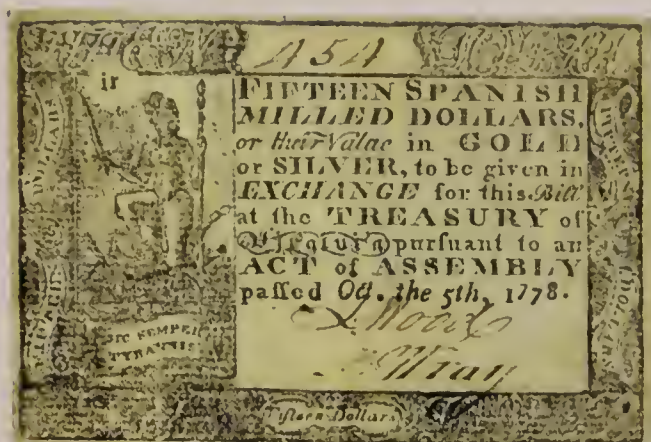 454
ir
FIFTEEN SPANISH
MILLED DOLLARS,
or their Value in GOLD
or SILVER, to be given in
EXCHANGE for this Bill
at the TREASURY of
Virginia purſuant to an
ACT of ASSEMBLY
paſſed Oct. the 5th, 1778.
Wood
Wray
SIC SEMPER
TYRANNIS
DOLLARS
Fifteen Dollars